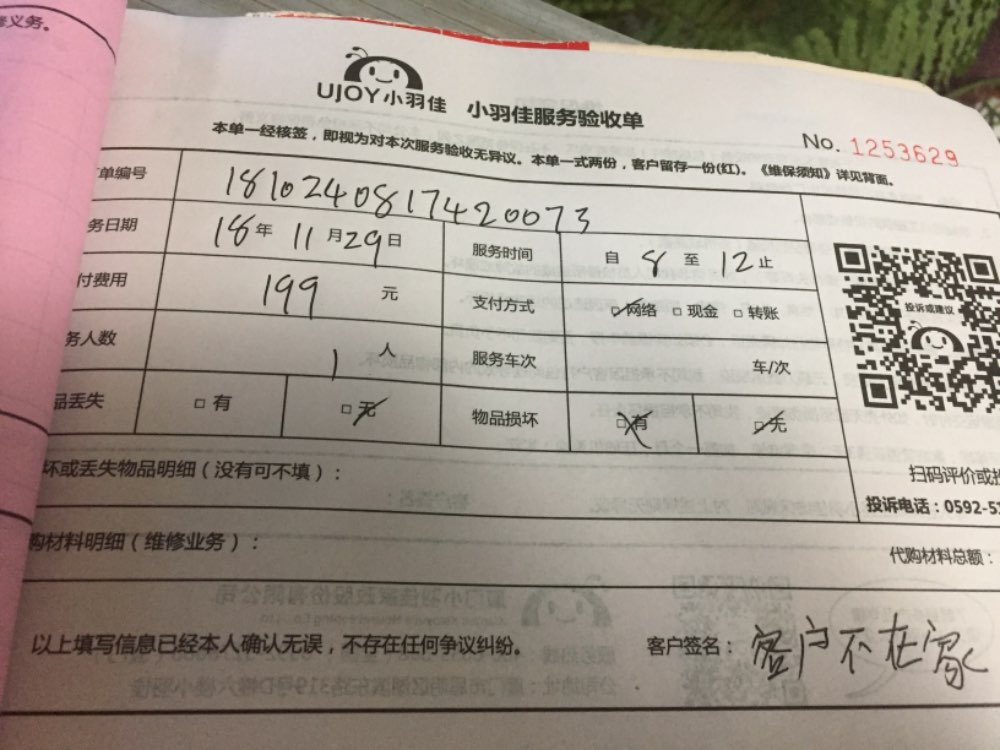 修义务。
UJOY小羽佳 小羽佳服务验收单
No. 1253629
本单一经核签，即视为对本次服务验收无异议。本单一式两份，客户留存一份(红)。《维保须知》详见背面。
单编号 1810240817420073
务日期 18年11月29日 服务时间 自8至12止
付费用 199元 支付方式 □网络 □现金 □转账
投诉或建议
务人数 1人 服务车次 车/次
品丢失 □有 □无 物品损坏 □有 □无
坏或丢失物品明细（没有可不填）：
扫码评价或投
投诉电话：0592-51
购材料明细（维修业务）：
代购材料总额：
以上填写信息已经本人确认无误，不存在任何争议纠纷。 客户签名：客户不在家